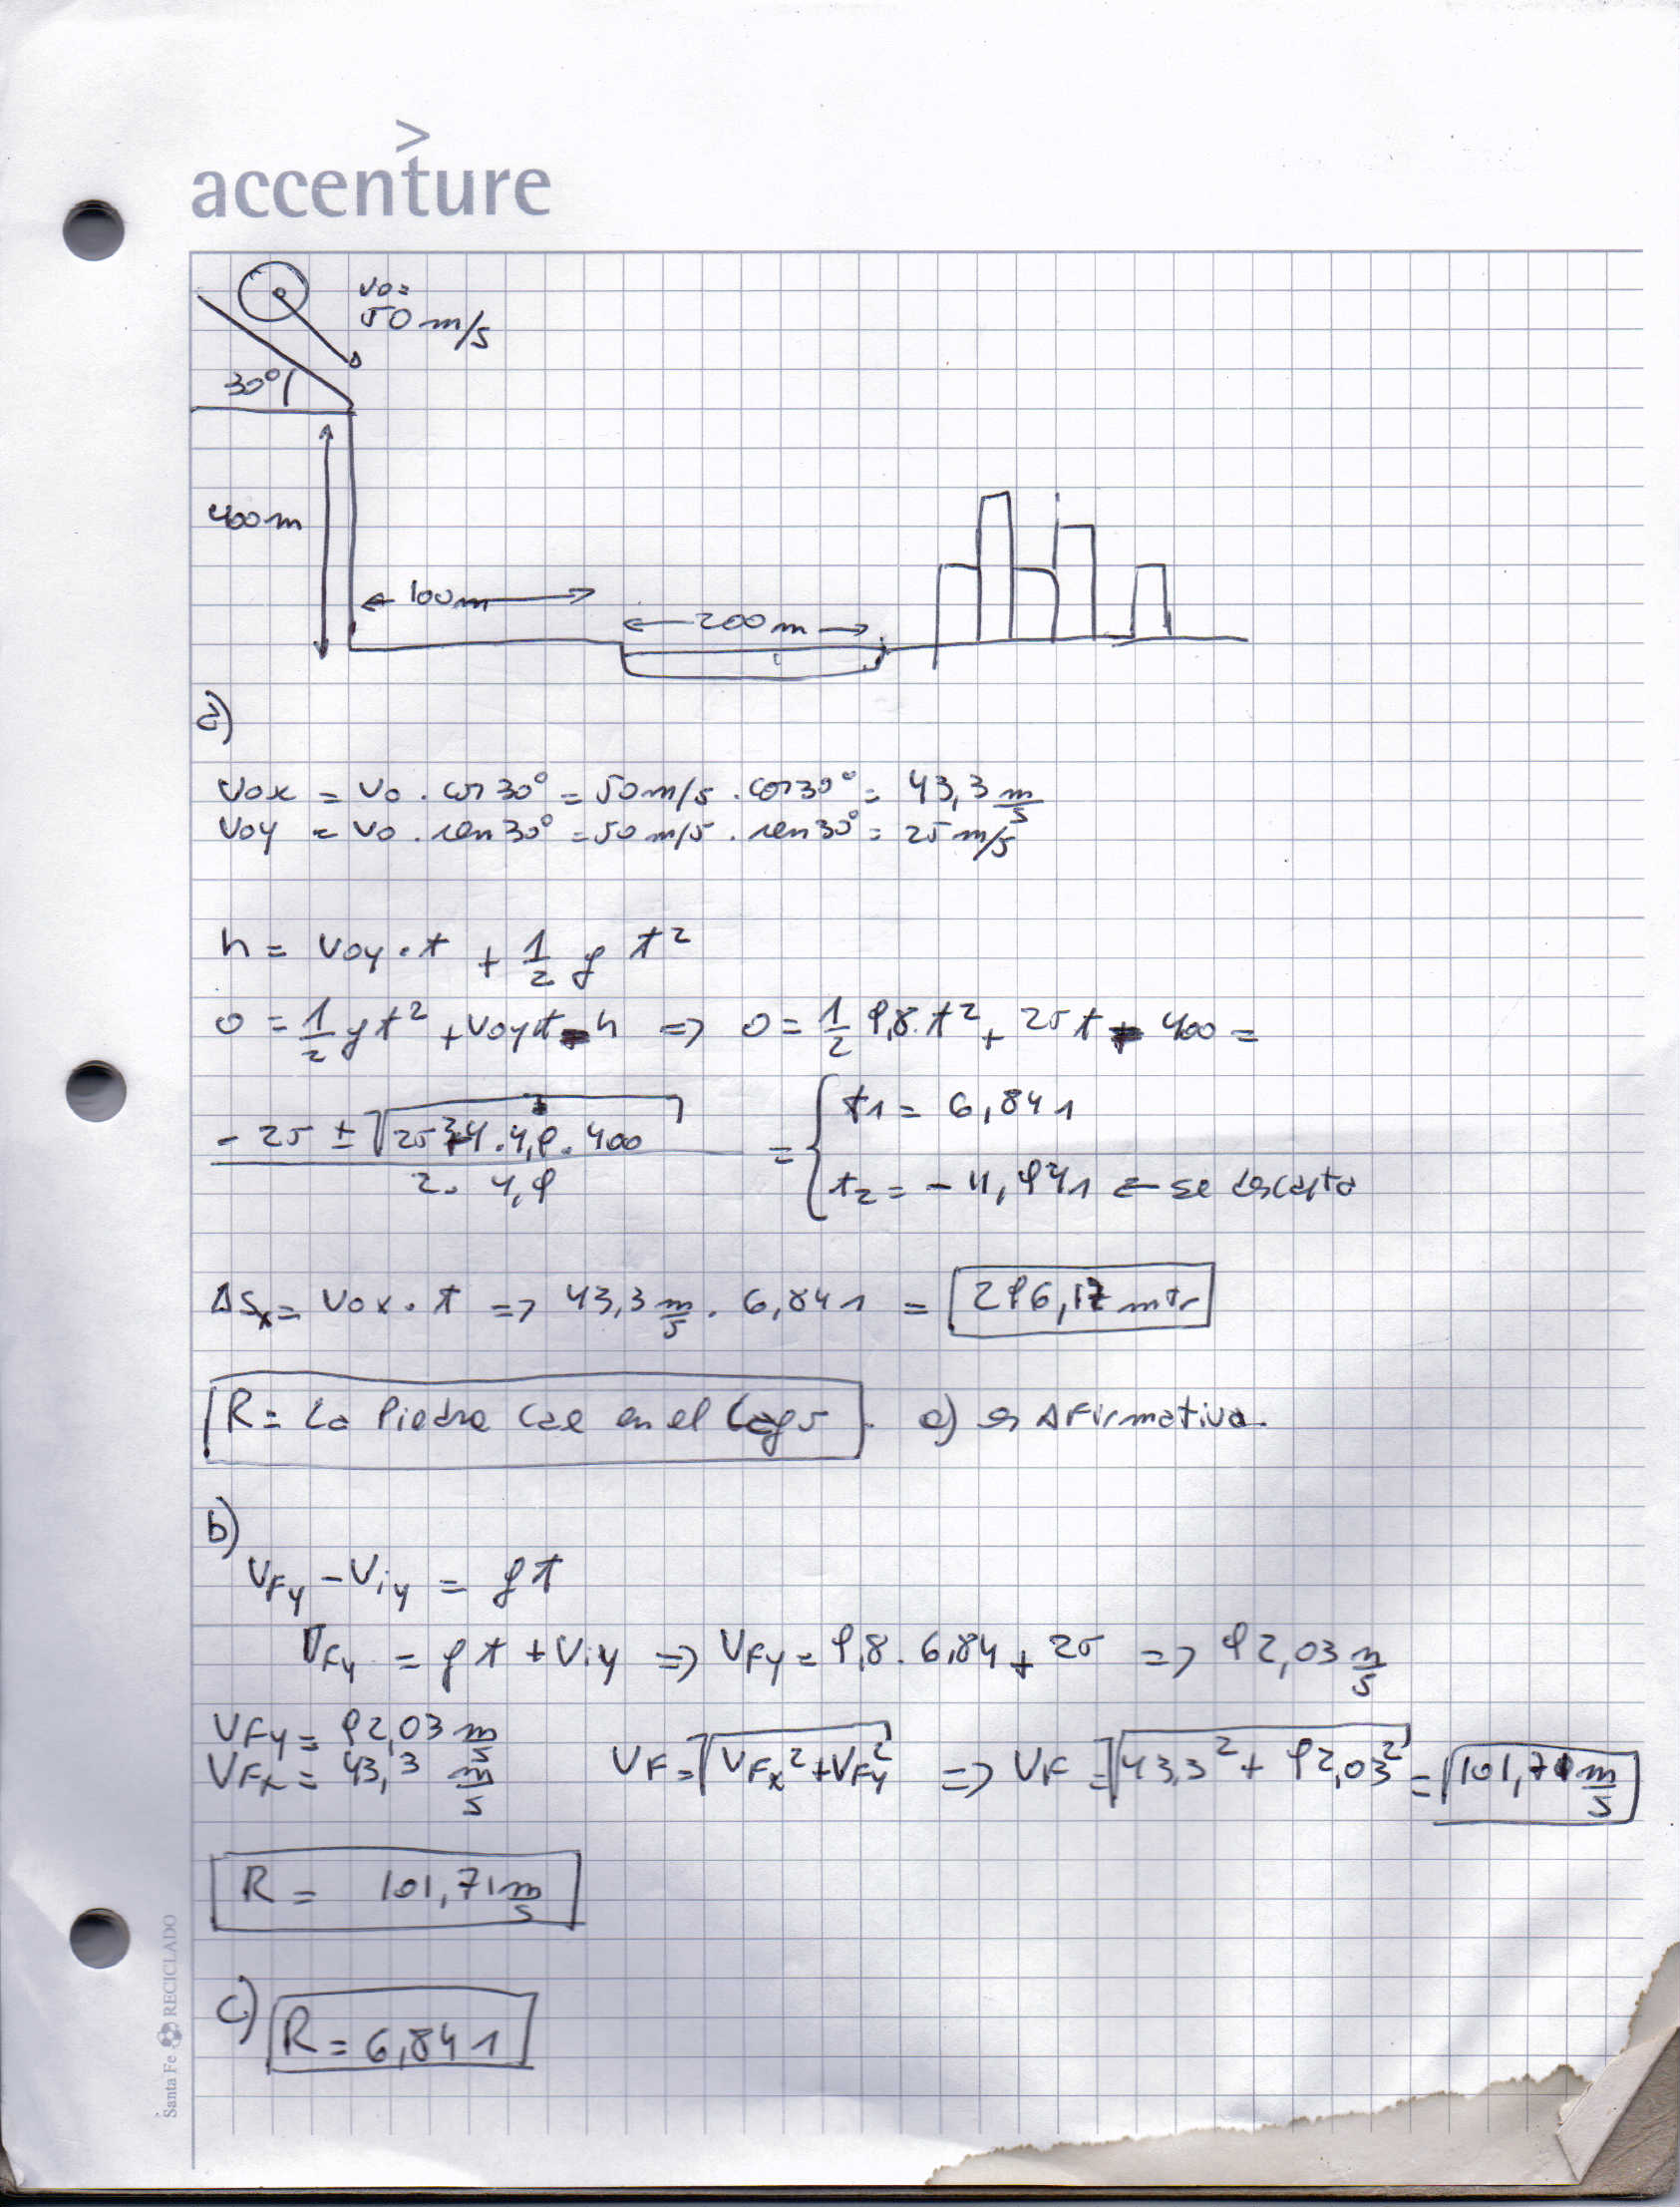 accenture
v0=
50 m/s
30°
400m
100m
200m
a)
V0x = V0 . cos 30° = 50 m/s . cos 30° = 43,3 m/s
V0y = V0 . sen 30° = 50 m/s . sen 30° = 25 m/s
h = V0y . t + 1/2 g t²
0 = 1/2 g t² + V0y t - h => 0 = 1/2 9,8 . t² + 25 t - 400 =
(- 25 ± √(25² + 4 . 4,9 . 400)) / (2 . 4,9) = { t1 = 6,84 s
t2 = - 11,94 s ← se descarta
Δsx = V0x . t => 43,3 m/s . 6,84 s = 296,17 mtr
R = La Piedra Cae en el Lago. a) es Afirmativa.
b)
VFy - Viy = g t
VFy = g t + Viy => VFy = 9,8 . 6,84 + 25 => 92,03 m/s
VFy = 92,03 m/s
VFx = 43,3 m/s VF = √(VFx² + VFy²) => VF = √(43,3² + 92,03²) = 101,71 m/s
R = 101,71 m/s
c) R = 6,84 s
Santa Fe RECICLADO